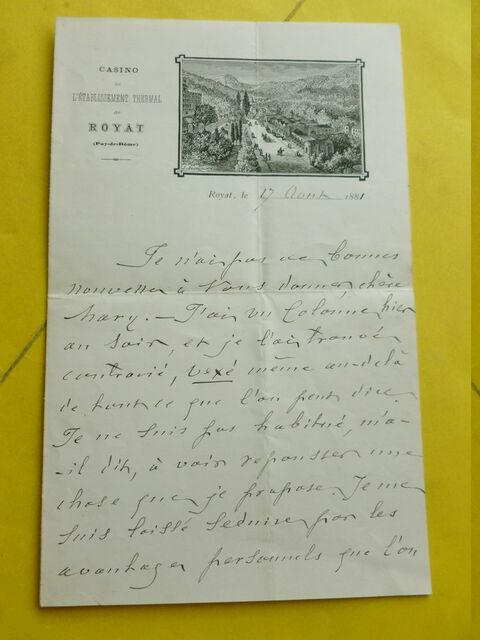 CASINO
DE
L'ÉTABLISSEMENT THERMAL
DE
ROYAT
(Puy-de-Dôme)
Royat, le 17 Août 1881
Je n'ai pas de bonnes
nouvelles à vous donner, chère
Mary. — J'ai vu Colonne hier
au soir, et je l'ai trouvé
contrarié, vexé même au-delà
de tout ce que l'on peut dire.
Je ne suis pas habitué, m'a-
-il dit, à voir repousser une
chose que je propose. Je me
suis laissé séduire par les
avantages personnels que l'on